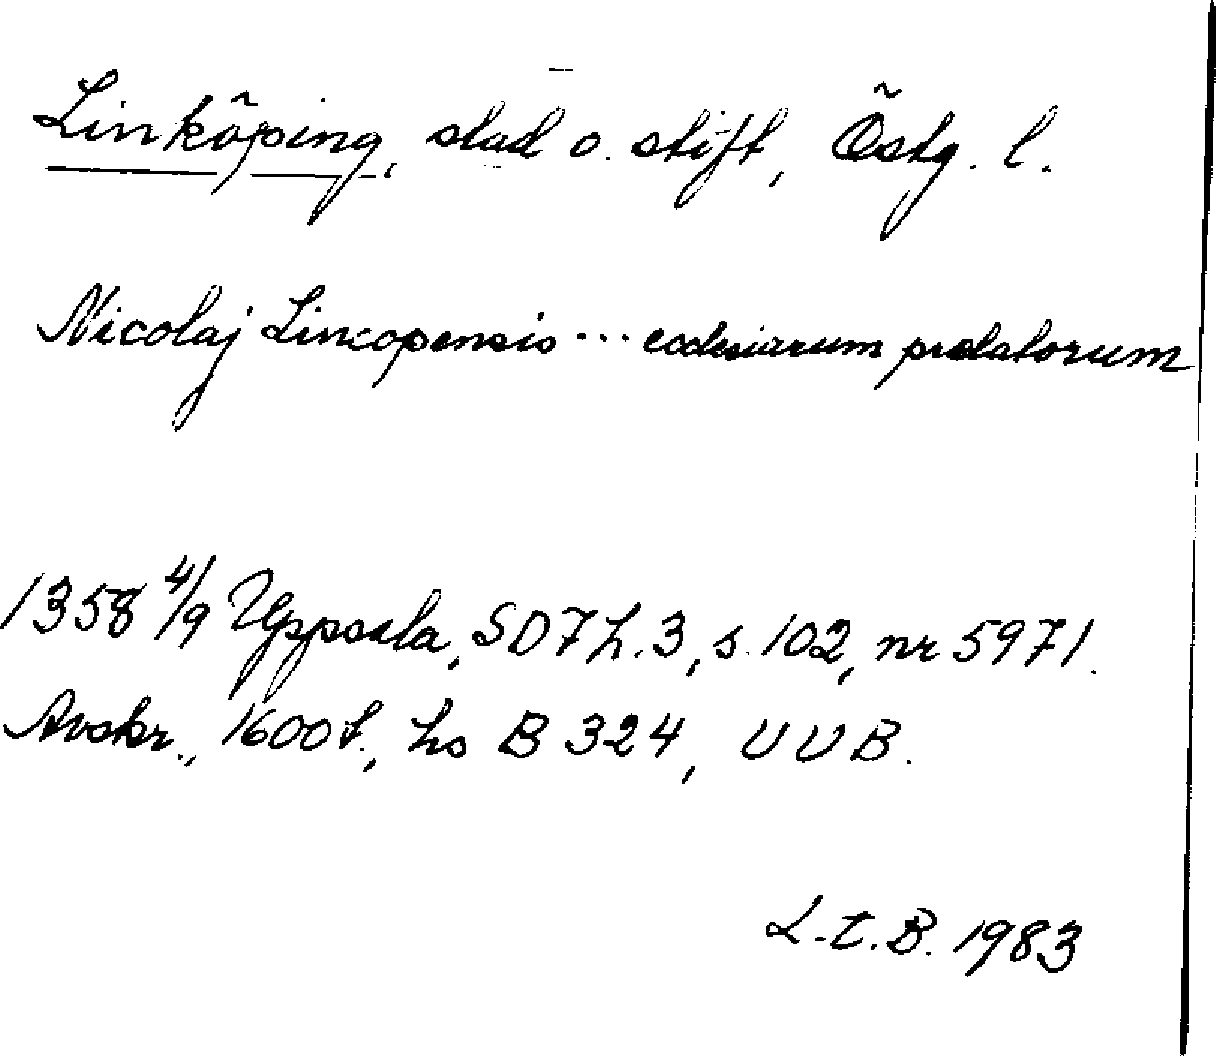 Linköping, stad o. stift, Östg. l.
Nicolaj Lincopensis ... ecclesiarum prelatorum
1358 4/9 Uppsala, SD7 h. 3, s. 102, nr 5971.
Avskr., 1600 t., hs B 324, UUB.
L. t. B. 1983